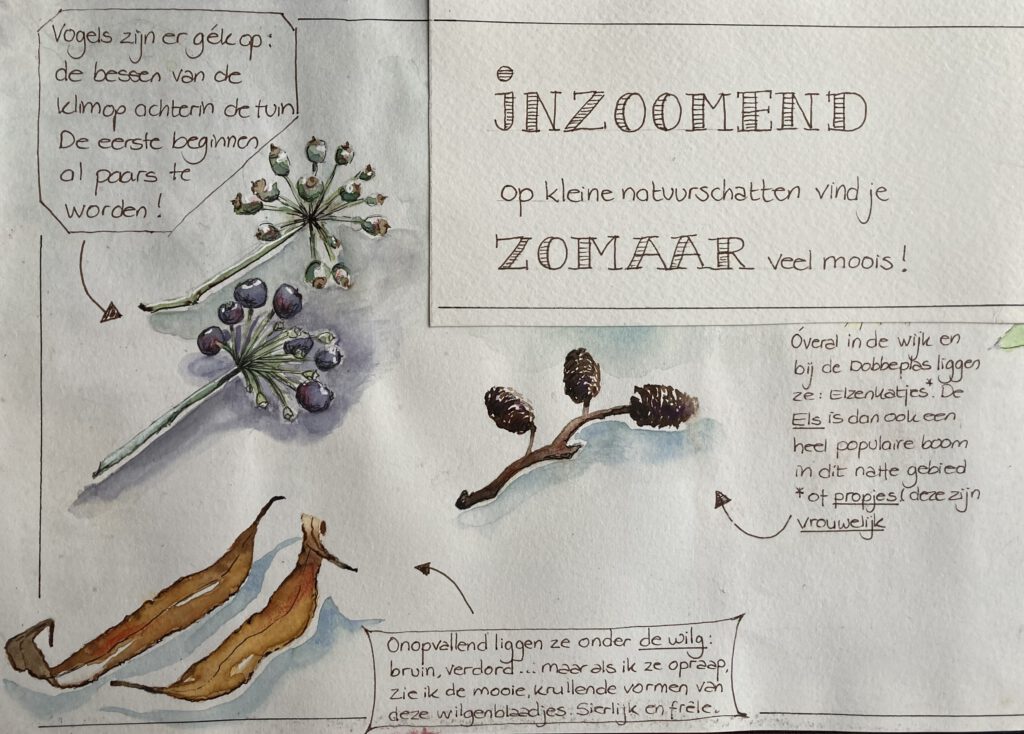 Vogels zijn er gék op:
de bessen van de
klimop achterin de tuin
De eerste beginnen
al paars te
worden!
inzoomend
op kleine natuurschatten vind je
ZOMAAR veel moois!
Óveral in de wijk en
bij de Dobbeplas liggen
ze: Elzenkatjes*. De
Els is dan ook een
heel populaire boom
in dit natte gebied
*of propjes! deze zijn
vrouwelijk
Onopvallend liggen ze onder de wilg:
bruin, verdord... maar als ik ze opraap,
zie ik de mooie, krullende vormen van
deze wilgenblaadjes. Sierlijk en frêle.